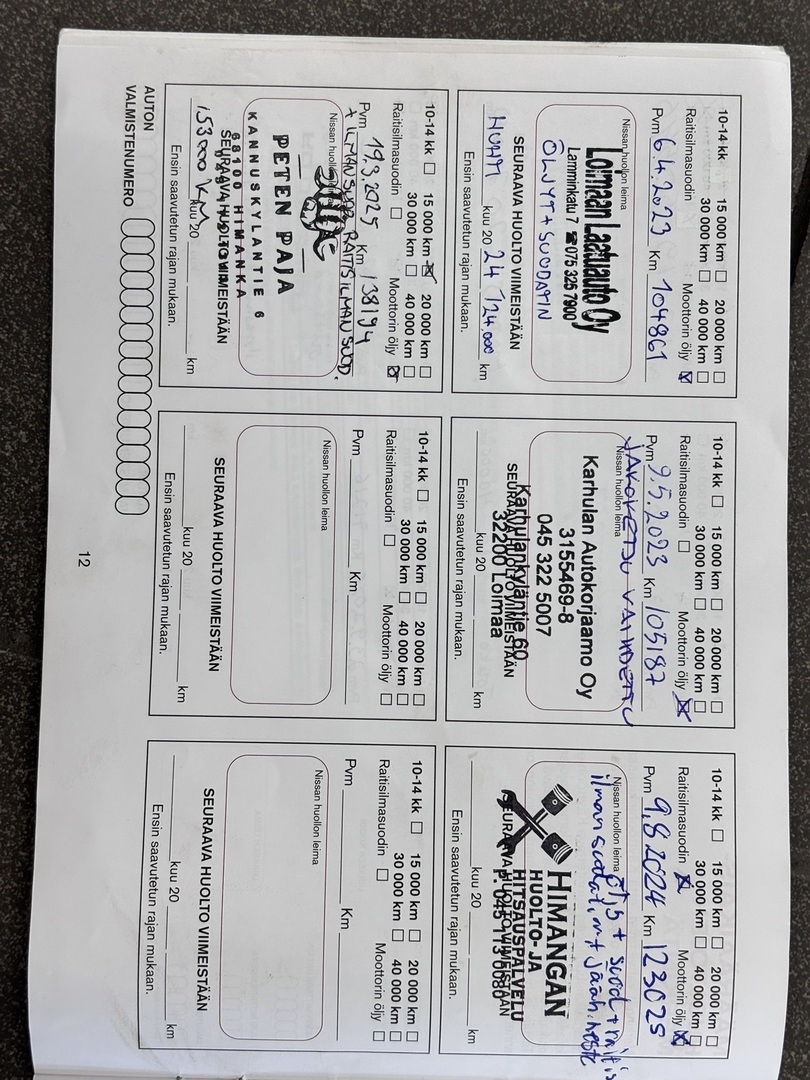 10-14 kk 15 000 km 20 000 km
30 000 km 40 000 km
Raitisilmasuodin Moottorin öljy
Pvm 6.4.2023 Km 104861
Nissan huollon leima
Loimaan Laatuauto Oy
Lamminkatu 7 ☎075 325 7900
ÖLJYT + SUODATIN
SEURAAVA HUOLTO VIIMEISTÄÄN
kuu 20 24 / 124.000 km
Ensin saavutetun rajan mukaan.
10-14 kk 15 000 km 20 000 km
30 000 km 40 000 km
Raitisilmasuodin Moottorin öljy
Pvm 9.5.2023 Km 105187
JAKOKETJU VAIHDETTU
Nissan huollon leima
Karhulan Autokorjaamo Oy
3155469-8
045 322 5007
Karhulankyläntie 60
32200 Loimaa
SEURAAVA HUOLTO VIIMEISTÄÄN
kuu 20 km
Ensin saavutetun rajan mukaan.
10-14 kk 15 000 km 20 000 km
30 000 km 40 000 km
Raitisilmasuodin Moottorin öljy
Pvm 9.8.2024 Km 123025
Nissan huollon leima öljy + suod + raitis
ilmansuodatin + jääh. neste
HIMANGAN
HUOLTO- JA
HITSAUSPALVELU
SEURAAVA HUOLTO VIIMEISTÄÄN
kuu 20 km
Ensin saavutetun rajan mukaan.
10-14 kk 15 000 km 20 000 km
30 000 km 40 000 km
Raitisilmasuodin Moottorin öljy
Pvm 19.3.2025 Km 138194
+ ILMANSUOD. RAITISILMANSUOD.
Nissan huollon leima
PETEN PAJA
KANNUSKYLANTIE 6
68100 HIMANKA
SEURAAVA HUOLTO VIIMEISTÄÄN
153000 KM kuu 20 km
Ensin saavutetun rajan mukaan.
10-14 kk 15 000 km 20 000 km
30 000 km 40 000 km
Raitisilmasuodin Moottorin öljy
Pvm Km
Nissan huollon leima
SEURAAVA HUOLTO VIIMEISTÄÄN
kuu 20 km
Ensin saavutetun rajan mukaan.
10-14 kk 15 000 km 20 000 km
30 000 km 40 000 km
Raitisilmasuodin Moottorin öljy
Pvm Km
Nissan huollon leima
SEURAAVA HUOLTO VIIMEISTÄÄN
kuu 20 km
Ensin saavutetun rajan mukaan.
AUTON
VALMISTENUMERO
12